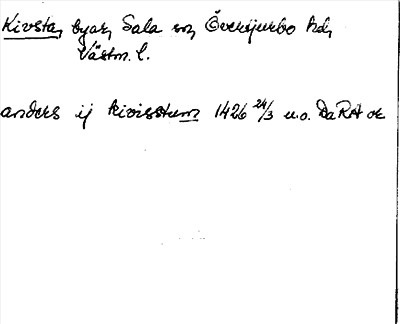 Kivsta, byar, Sala sn, Övertjurbo hd,
Västm. l.
anders ij kivisstum 1426 24/3 u.o. DaRA or